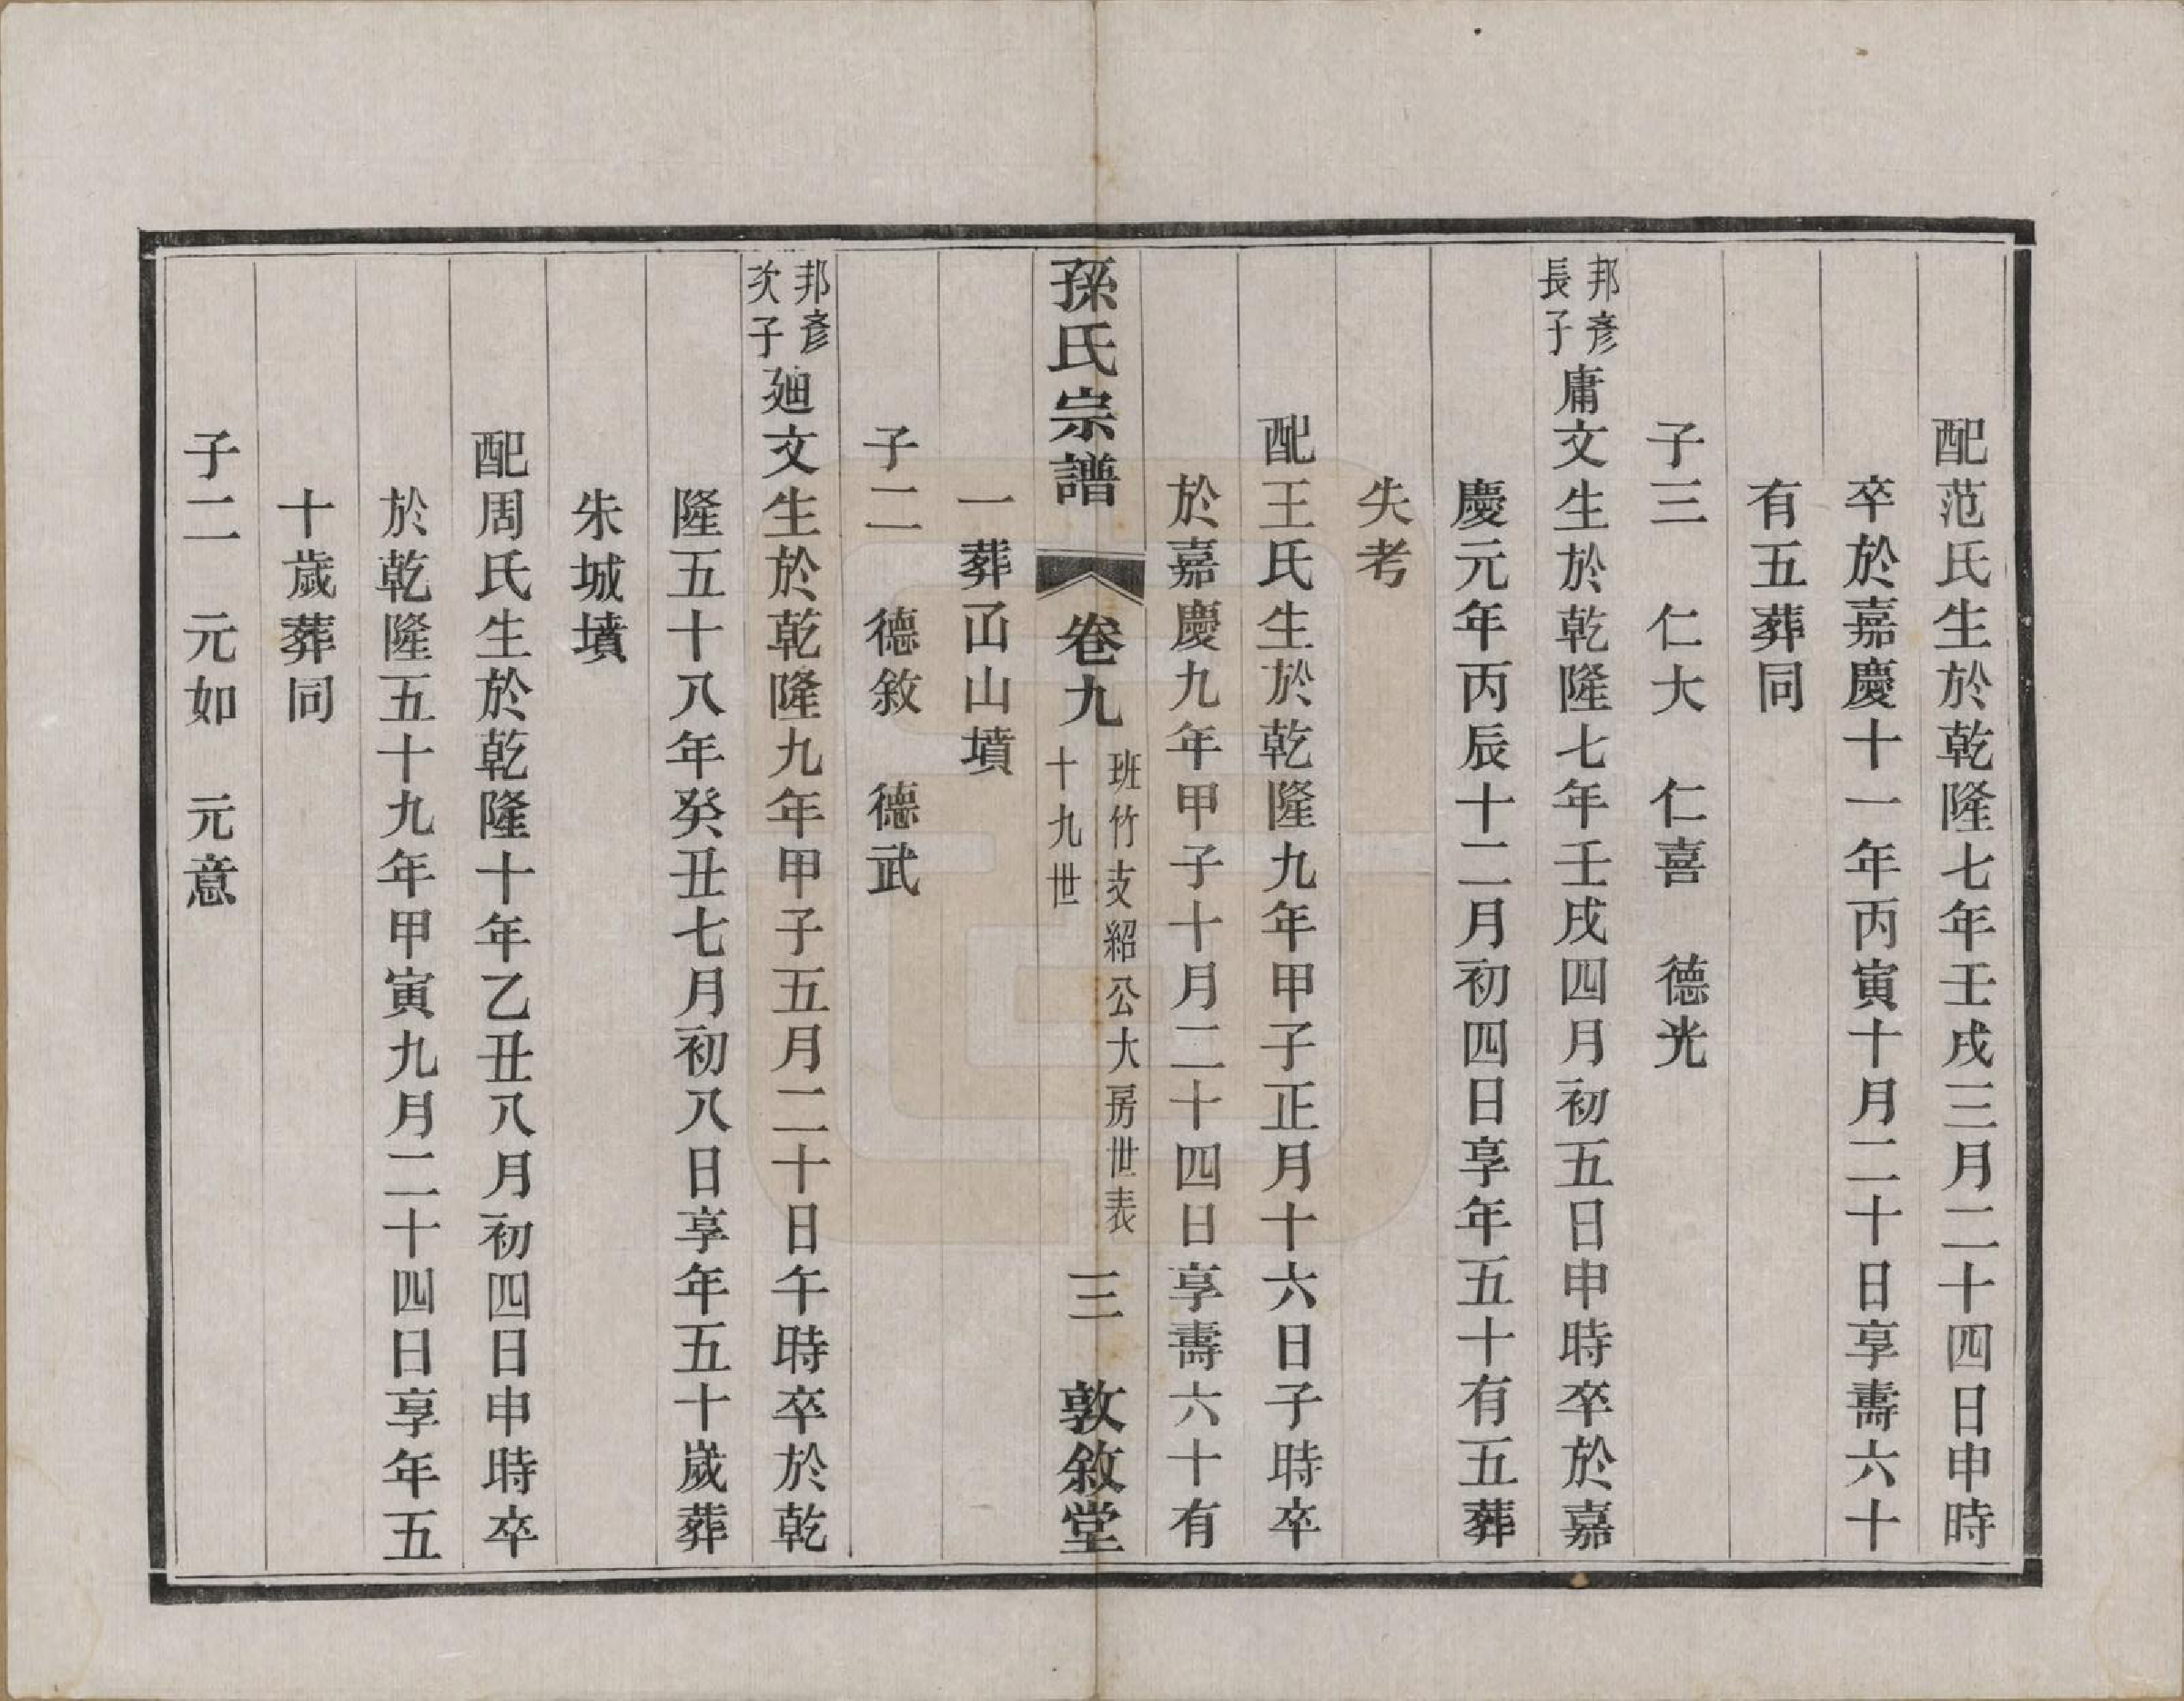 配范氏生於乾隆七年壬戌三月二十四日申時
卒於嘉慶十一年丙寅十月二十日享壽六十
有五葬同
子三　仁大　仁喜　德光
邦彥長子庸文生於乾隆七年壬戌四月初五日申時卒於嘉
慶元年丙辰十二月初四日享年五十有五葬
失考
配王氏生於乾隆九年甲子正月十六日子時卒
於嘉慶九年甲子十月二十四日享壽六十有
孫氏宗譜　卷九　班竹支紹公大房世表　十九世　三　敦敘堂
一葬丙山墳
子二　德敘　德武
邦彥次子廸文生於乾隆九年甲子五月二十日午時卒於乾
隆五十八年癸丑七月初八日享年五十歲葬
朱城墳
配周氏生於乾隆十年乙丑八月初四日申時卒
於乾隆五十九年甲寅九月二十四日享年五
十歲葬同
子二　元如　元意